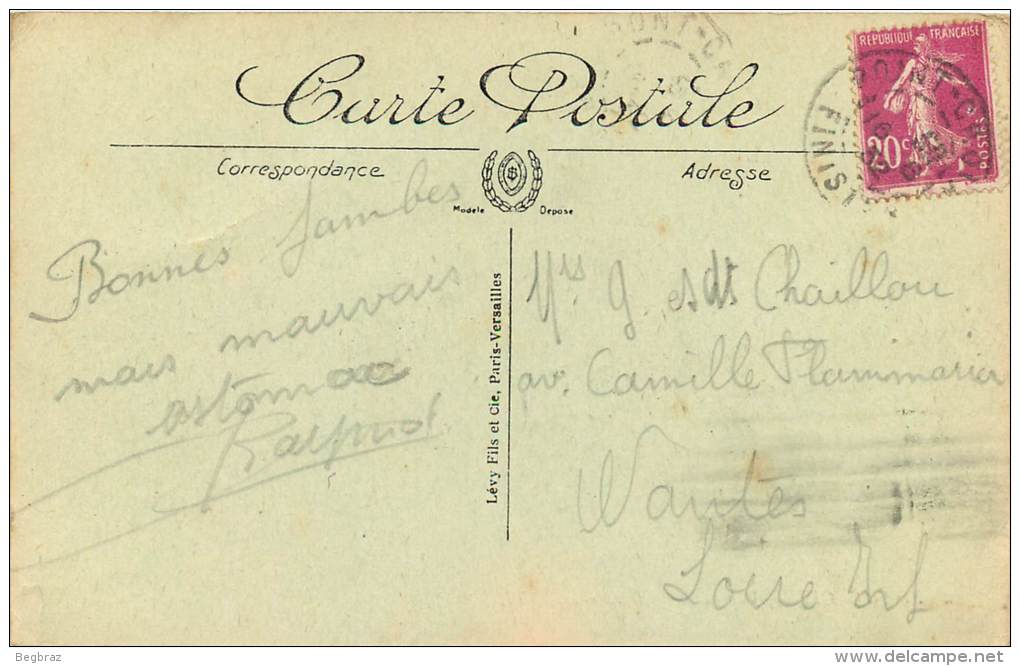 Carte Postale
RÉPUBLIQUE FRANÇAISE
20 c
POSTES
PONT-CROIX
FINISTÈRE
Correspondance
Adresse
Modèle Déposé
Bonnes jambes
mais mauvais
estomac
Lévy Fils et Cie, Paris-Versailles
Mrs G. et Chaillou
av. Camille Flammarion
Nantes
Loire Inf
Begbraz
delcampe.net